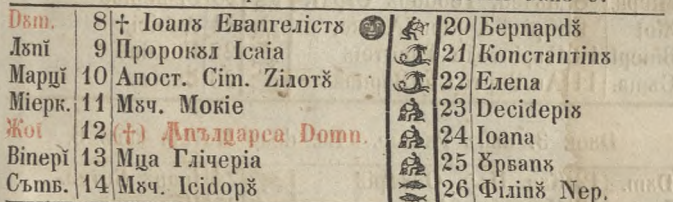 Dᴕm. 8 † Ioanᴕ Евангелістᴕ 20 Бернардᴕ
Лᴕnĭ 9 Пророкᴕл Ісаіа 21 Константінᴕ
Марцĭ 10 Апост. Сіm. Зілотᴕ̆ 22 Елена
Міерк. 11 Мᴕч. Мокіе 23 Decideріᴕ
Жоĭ 12 (†) Ꙟпълцареа Domn. 24 Ioana
Вінерĭ 13 Мца Глічеріа 25 Ꙋрванᴕ
Сътб. 14 Мᴕч. Ісідорᴕ̆ 26 Філіпᴕ̆ Nep.